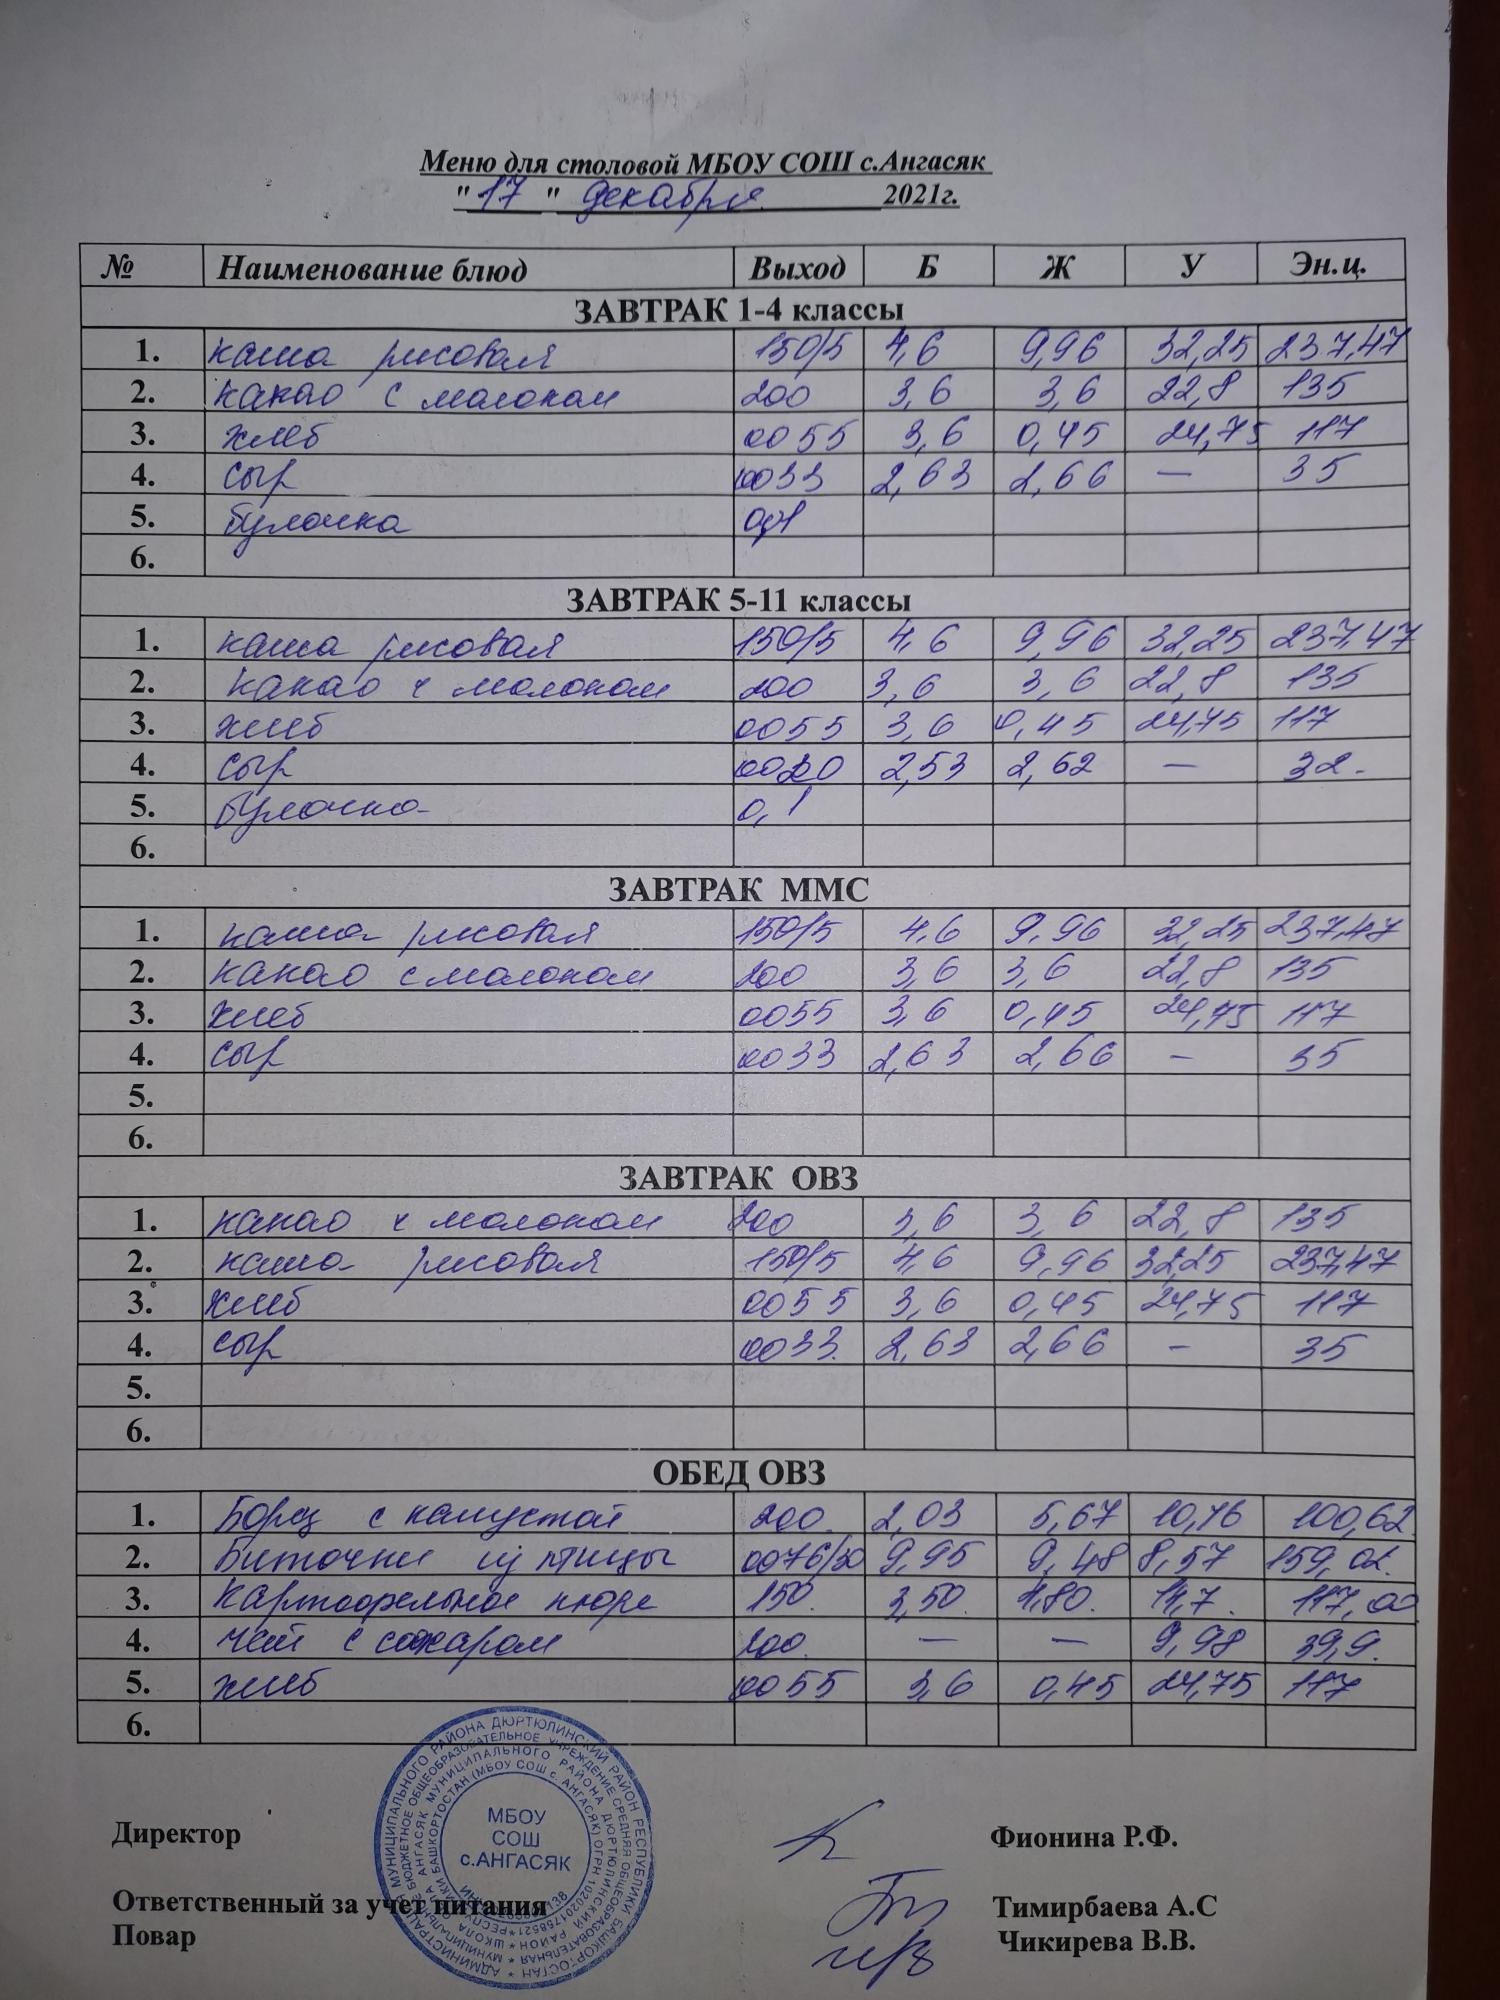 Меню для столовой МБОУ СОШ с.Ангасяк
"17" декабря 2021г.
№ Наименование блюд Выход Б Ж У Эн.ц.
ЗАВТРАК 1-4 классы
1. каша рисовая 150/5 4,6 9,96 32,25 237,47
2. какао с молоком 200 3,6 3,6 22,8 135
3. хлеб 0055 3,6 0,45 24,75 117
4. сыр 0033 2,63 2,66 — 35
5. булочка 0,1
6.
ЗАВТРАК 5-11 классы
1. каша рисовая 150/5 4,6 9,96 32,25 237,47
2. какао с молоком 200 3,6 3,6 22,8 135
3. хлеб 0055 3,6 0,45 24,75 117
4. сыр 2,53 2,62 — 32.
5. булочка 0,1
6.
ЗАВТРАК ММС
1. каша рисовая 150/5 4,6 9,96 32,25 237,47
2. какао с молоком 200 3,6 3,6 22,8 135
3. хлеб 0055 3,6 0,45 24,75 117
4. сыр 0033 2,63 2,66 — 35
5.
6.
ЗАВТРАК ОВЗ
1. какао с молоком 200 3,6 3,6 22,8 135
2. каша рисовая 150/5 4,6 9,96 32,25 237,47
3. хлеб 0055 3,6 0,45 24,75 117
4. сыр 0033. 2,63 2,66 — 35
5.
6.
ОБЕД ОВЗ
1. Борщ с капустой 200. 2,03 5,67 10,16 100,62
2. Биточки из птицы 0076/30 9,95 9,48 8,57 159,02.
3. Картофельное пюре 150. 3,50. 4,80. 14,7. 117,00
4. чай с сахаром 200. — — 9,98 39,9.
5. хлеб 0055 3,6 0,45 24,75 117
6.
МБОУ
СОШ
с.АНГАСЯК
Директор Фионина Р.Ф.
Ответственный за учет питания Тимирбаева А.С
Повар Чикирева В.В.